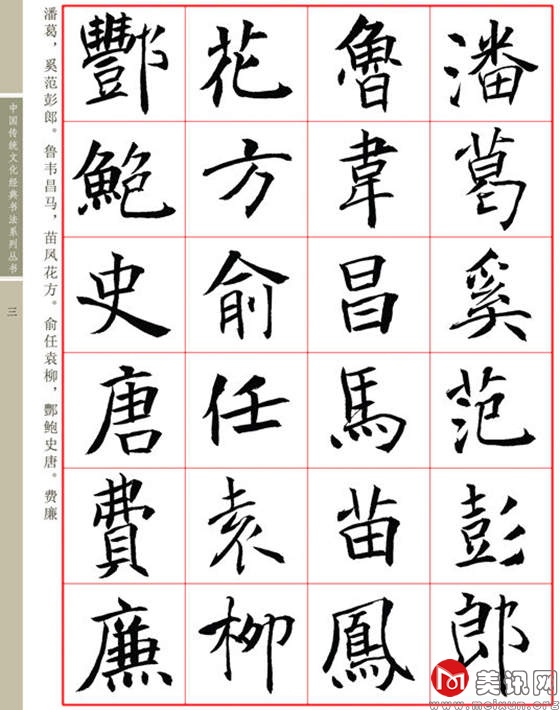 潘葛奚范彭郎
魯韋昌馬苗鳳
花方俞任袁柳
酆鮑史唐費廉
潘葛，奚范彭郎。鲁韦昌马，苗凤花方。俞任袁柳，酆鲍史唐。费廉
中国传统文化经典书法系列丛书
三
美讯网
www.meixun.org